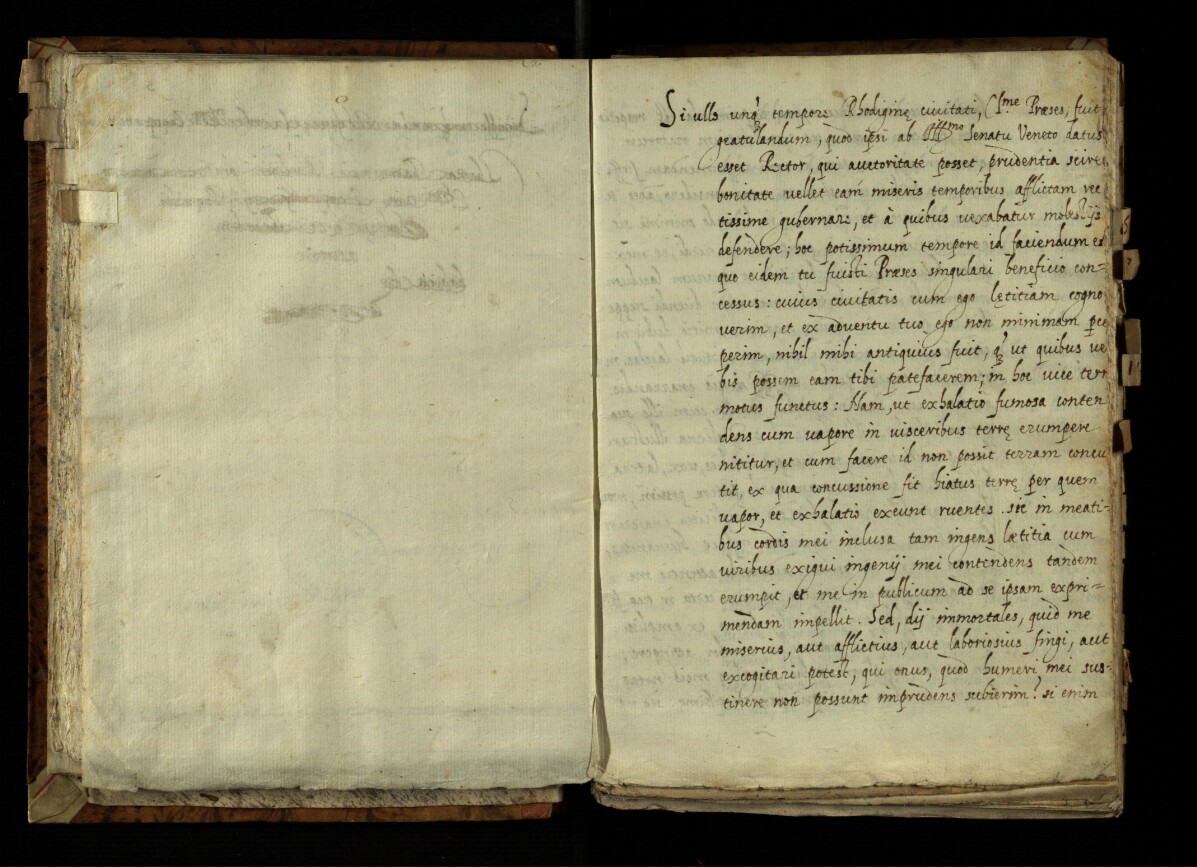 Si ullo unq̃ tempore Rhodiginę ciuitati, Cl.me Præses, fuit
gratulandum, quòd ipsi ab Ill.mo Senatu Veneto datus
esset Rector, qui auctoritate posset, prudentia sciret,
bonitate vellet eam miseris temporibus afflictam rec
tissime gubernare, et à quibus vexabatur molestijs
defendere; hoc potissimum tempore id faciendum est
quo eidem tu fuisti Præses singulari beneficio con=
cessus: cuius ciuitatis cum ego lętitiam cogno
uerim, et ex aduentu tuo ego non minimam pce
perim, nihil mihi antiquius fuit, q̃ ut quibus ver
bis possem eam tibi patefacerem; in hoc vice terr
motus functus: Nam, ut exhalatio fumosa conten
dens cum vapore in visceribus terrę erumpere
nititur, et cum facere id non possit terram concu
tit, ex qua concussione fit hiatus terrę per quem
vapor, et exhalatio exeunt ruentes. sic in meati=
bus cordis mei inclusa tam ingens lætitia cum
viribus exigui ingenij mei contendens tandem
erumpit, et me in publicum ad se ipsam expri=
mendam impellit. Sed, dij immortales, quid me
miserius, aut afflictius, aut laboriosius fingi, aut
excogitari potest, qui onus, quod humeri mei sus=
tinere non possunt imprudens subierim? si enim